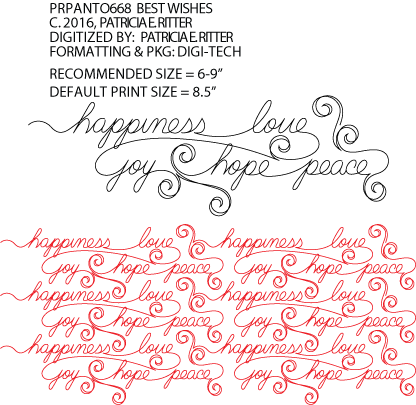 PRPANTO668 BEST WISHES
C. 2016, PATRICIA E. RITTER
DIGITIZED BY: PATRICIA E. RITTER
FORMATTING & PKG: DIGI-TECH
RECOMMENDED SIZE = 6-9”
DEFAULT PRINT SIZE = 8.5”
happiness love
joy hope peace
happiness love happiness love
joy hope peace joy hope peace
happiness love happiness love
joy hope peace joy hope peace
happiness love happiness love
joy hope peace joy hope peace